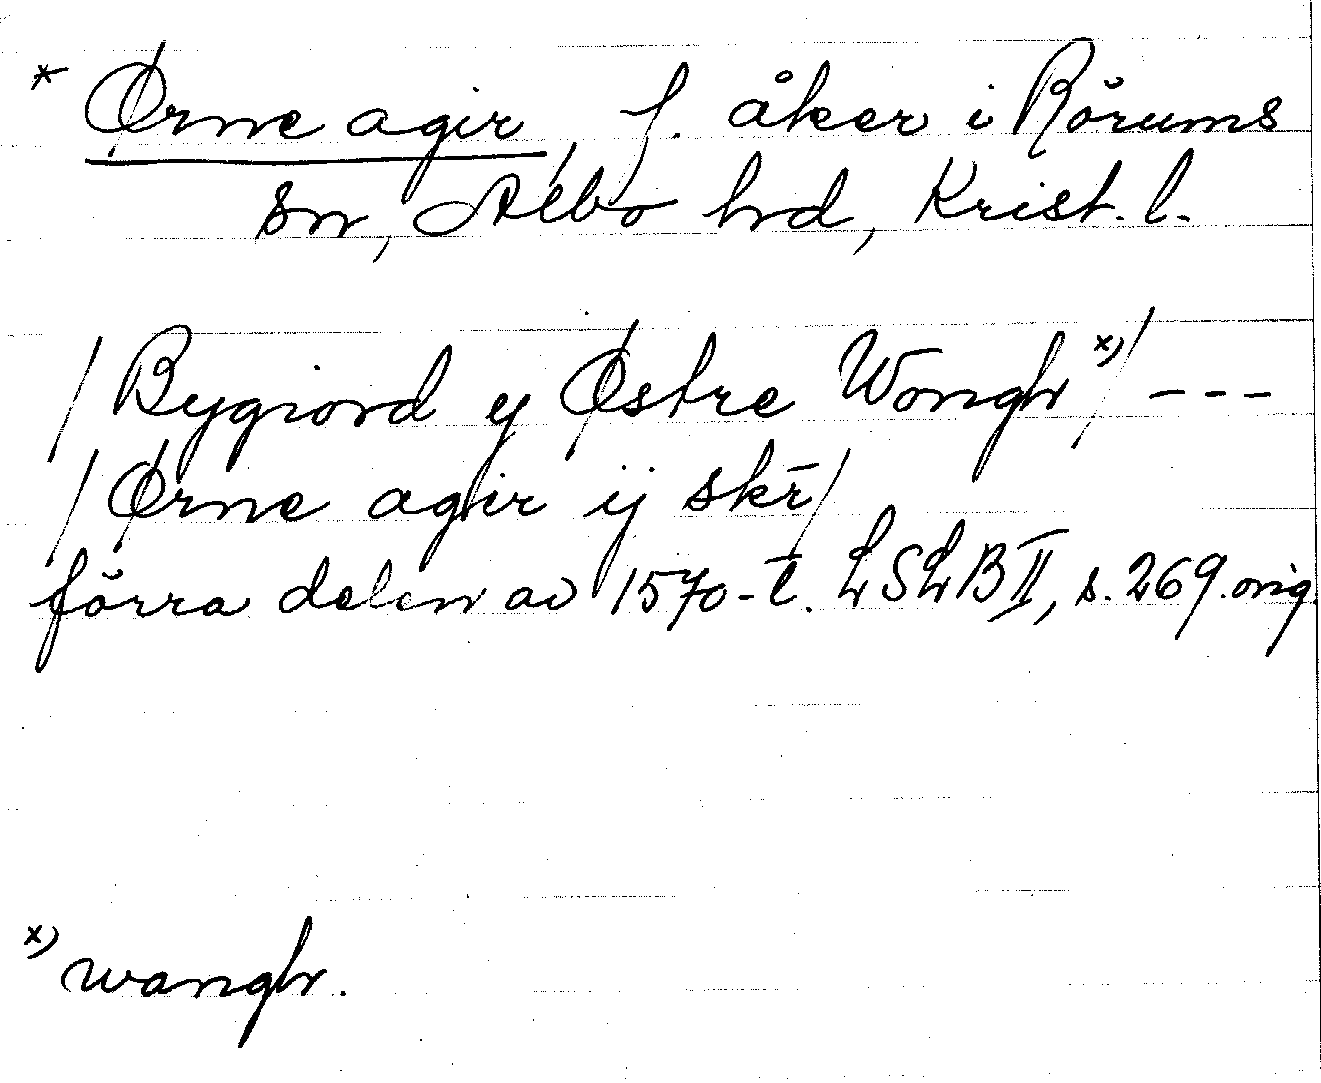 * Ørne agir, f. åker i Rörums
sn, Albo hd, Krist. l.
/Bygiord y Østre Wongh x)/ ---
/Ørne agir ij skr̄/
förra delen av 1570-t. LSLB II, s. 269. orig.
x) wangh.